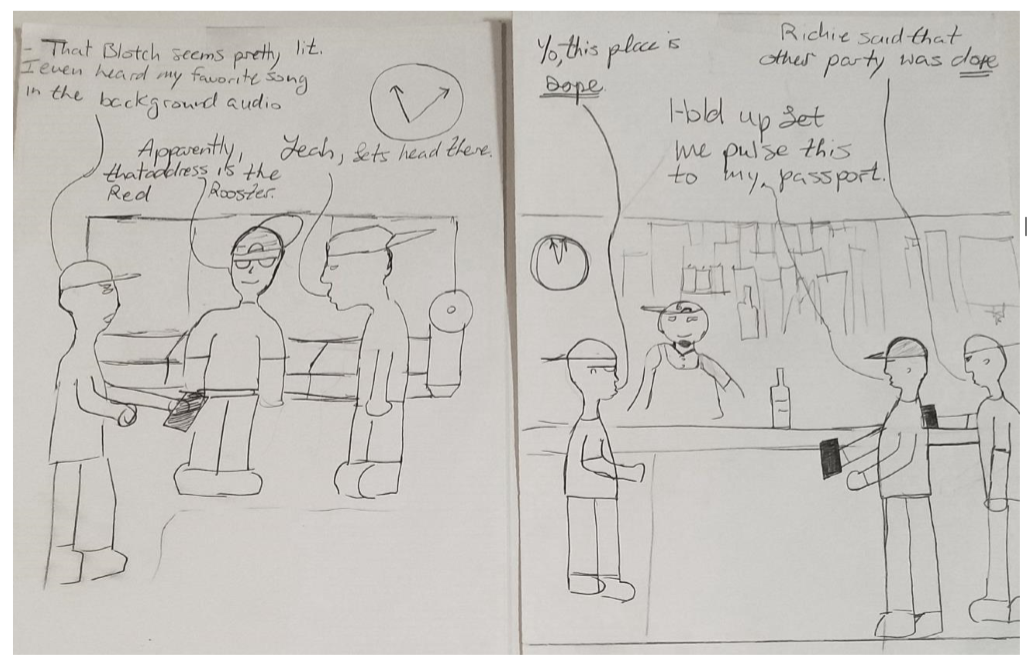 - That Blotch seems pretty lit.
I even heard my favorite song
in the background audio
Apparently,
that address is the
Red Rooster.
Yeah, Lets head there.
Yo, this place is
Dope
Richie said that
other party was dope
Hold up Let
me pulse this
to my passport.